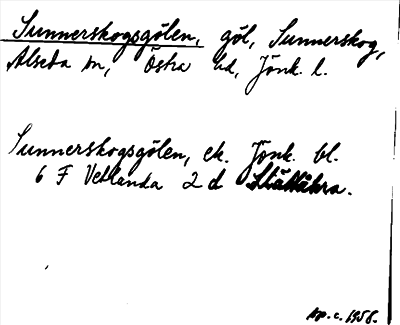 Sunnerskogsgölen, göl, Sunnerskog,
Alseda sn, Östra hd, Jönk. l.
Sunnerskogsgölen, ek. Jönk. bl.
6 F Vetlanda 2 d Slättåkra.
1958.